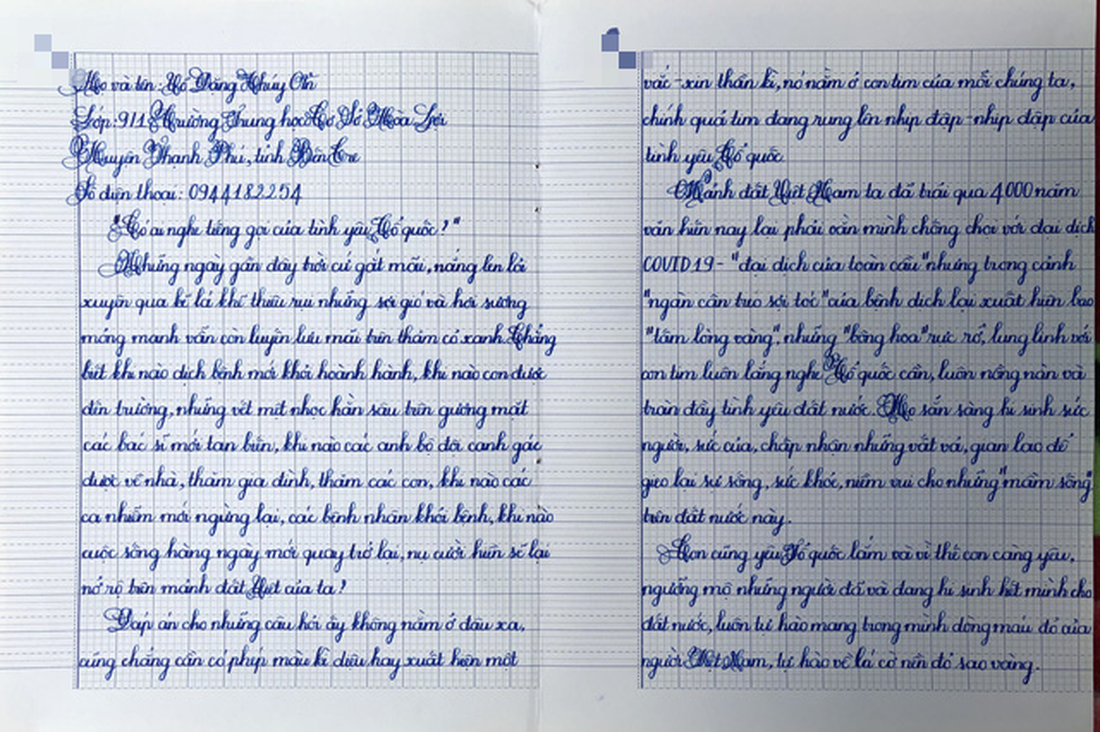 Họ và tên: Hồ Đặng Thúy An
Lớp: 9/1 Trường Trung học Cơ Sở Hòa Lợi
Huyện Thạnh Phú, tỉnh Bến Tre
Số điện thoại: 0944182254
"Có ai nghe tiếng gọi của tình yêu Tổ quốc?"
Những ngày gần đây trời cứ gắt mãi, nắng len lỏi
xuyên qua kẽ lá khẽ thiêu rụi những sợi gió và hơi sương
mỏng manh vẫn còn luyến lưu mãi trên thảm cỏ xanh. Chẳng
biết khi nào dịch bệnh mới khỏi hoành hành, khi nào con được
đến trường, những vết mệt nhọc hằn sâu trên gương mặt
các bác sĩ mới tan biến, khi nào các anh bộ đội canh gác
được về nhà, thăm gia đình, thăm các con, khi nào các
ca nhiễm mới ngừng lại, các bệnh nhân khỏi bệnh, khi nào
cuộc sống hàng ngày mới quay trở lại, nụ cười hiền sẽ lại
nở rộ trên mảnh đất Việt của ta?
Đáp án cho những câu hỏi ấy không nằm ở đâu xa,
cũng chẳng cần có phép màu kì diệu hay xuất hiện một
vắc-xin thần kì, nó nằm ở con tim của mỗi chúng ta,
chính quả tim đang rung lên nhịp đập - nhịp đập của
tình yêu Tổ quốc.
Mảnh đất Việt Nam ta đã trải qua 4000 năm
văn hiến nay lại phải oằn mình chống chọi với đại dịch
COVID 19 - "đại dịch của toàn cầu" nhưng trong cảnh
"ngàn cân treo sợi tóc" của bệnh dịch lại xuất hiện bao
"tấm lòng vàng", những "bông hoa" rực rỡ, lung linh với
con tim luôn lắng nghe Tổ quốc cần, luôn nồng nàn và
tràn đầy tình yêu đất nước. Họ sẵn sàng hi sinh sức
người, sức của, chấp nhận những vất vả, gian lao để
gieo lại sự sống, sức khỏe, niềm vui cho những "mầm sống"
trên đất nước này.
Con cũng yêu Tổ quốc lắm và vì thế con càng yêu,
ngưỡng mộ những người đã và đang hi sinh hết mình cho
đất nước, luôn tự hào mang trong mình dòng máu đỏ của
người Việt Nam, tự hào về lá cờ nền đỏ sao vàng.